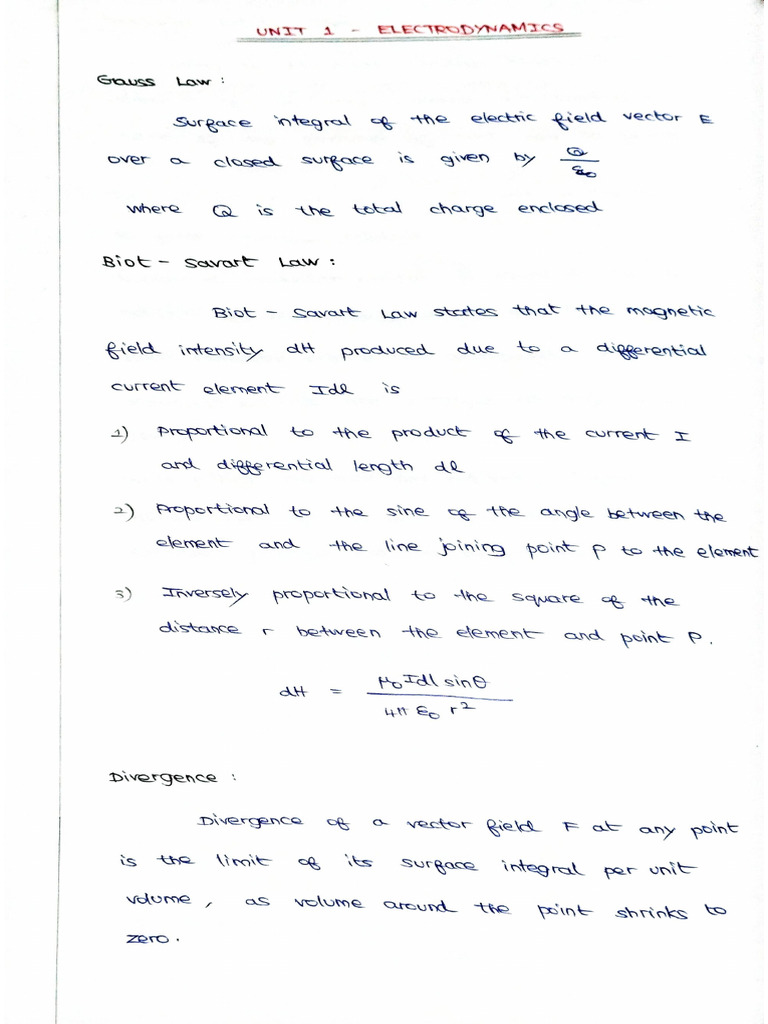 UNIT 1 - ELECTRODYNAMICS
Gauss Law :
Surface integral of the electric field vector E
over a closed surface is given by Q/ε₀
where Q is the total charge enclosed
Biot - Savart Law :
Biot - Savart Law states that the magnetic
field intensity dH produced due to a differential
current element Idl is
1) Proportional to the product of the current I
and differential length dl
2) Proportional to the sine of the angle between the
element and the line joining point P to the element
3) Inversely proportional to the square of the
distance r between the element and point P.
dH = μ₀ Idl sinθ / 4π ε₀ r²
Divergence :
Divergence of a vector field F at any point
is the limit of its surface integral per unit
volume, as volume around the point shrinks to
zero.